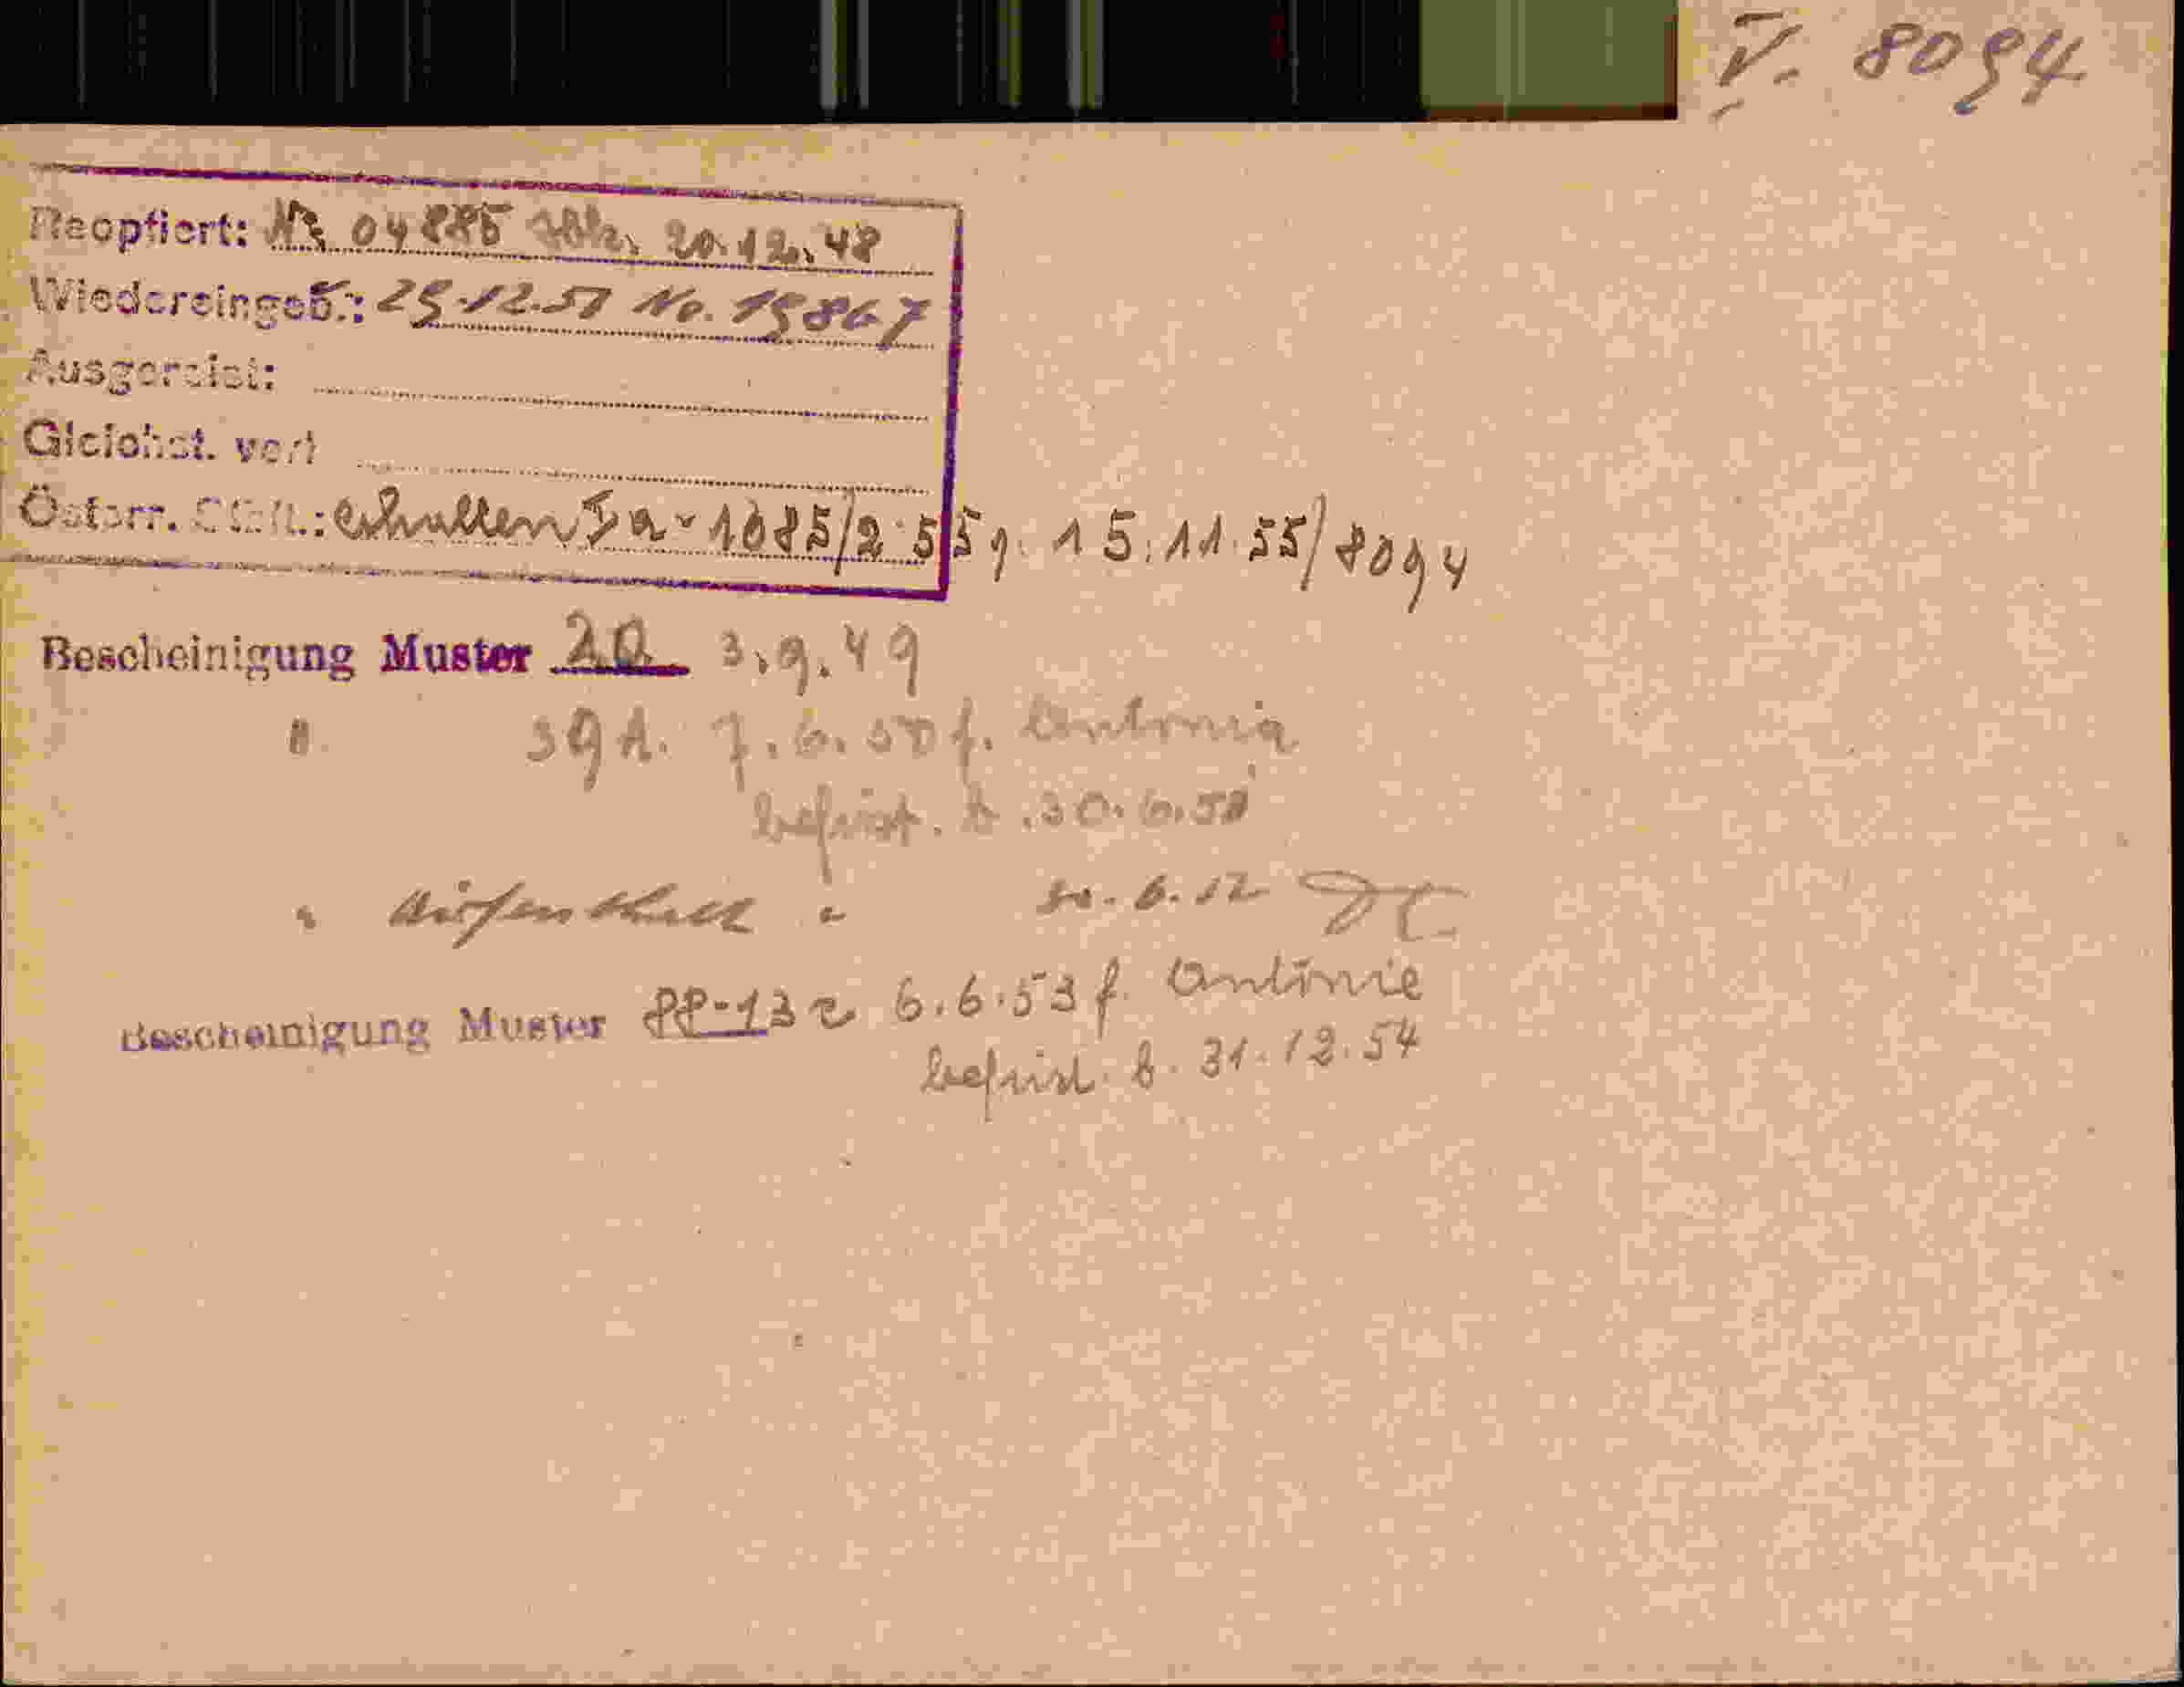 V. 8094
Reoptiert: No 04885 20.12.48
Wiedereingeb.: 29.12.51 No. 19867
Ausgereist:
Gleichst. verl
Österr. Stbg.: erhalten Ia-1085/2-559. 15.11.55/8094
Bescheinigung Muster 20 3.9.49
" 39A. 7.6.50 f. Antonia
befrist. b. 30.6.51
" Aufenthalt " 30.6.52
Bescheinigung Muster PP-13 c 6.6.53 f. Antonie
befrist. b. 31.12.54